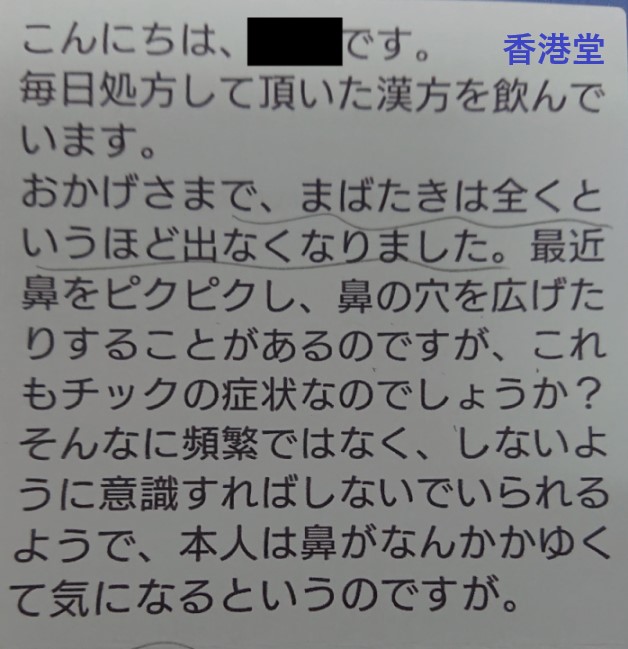 こんにちは、です。
香港堂
毎日処方して頂いた漢方を飲んで
います。
おかげさまで、まばたきは全くと
いうほど出なくなりました。最近
鼻をピクピクし、鼻の穴を広げた
りすることがあるのですが、これ
もチックの症状なのでしょうか?
そんなに頻繁ではなく、しないよ
うに意識すればしないでいられる
ようで、本人は鼻がなんかかゆく
て気になるというのですが。